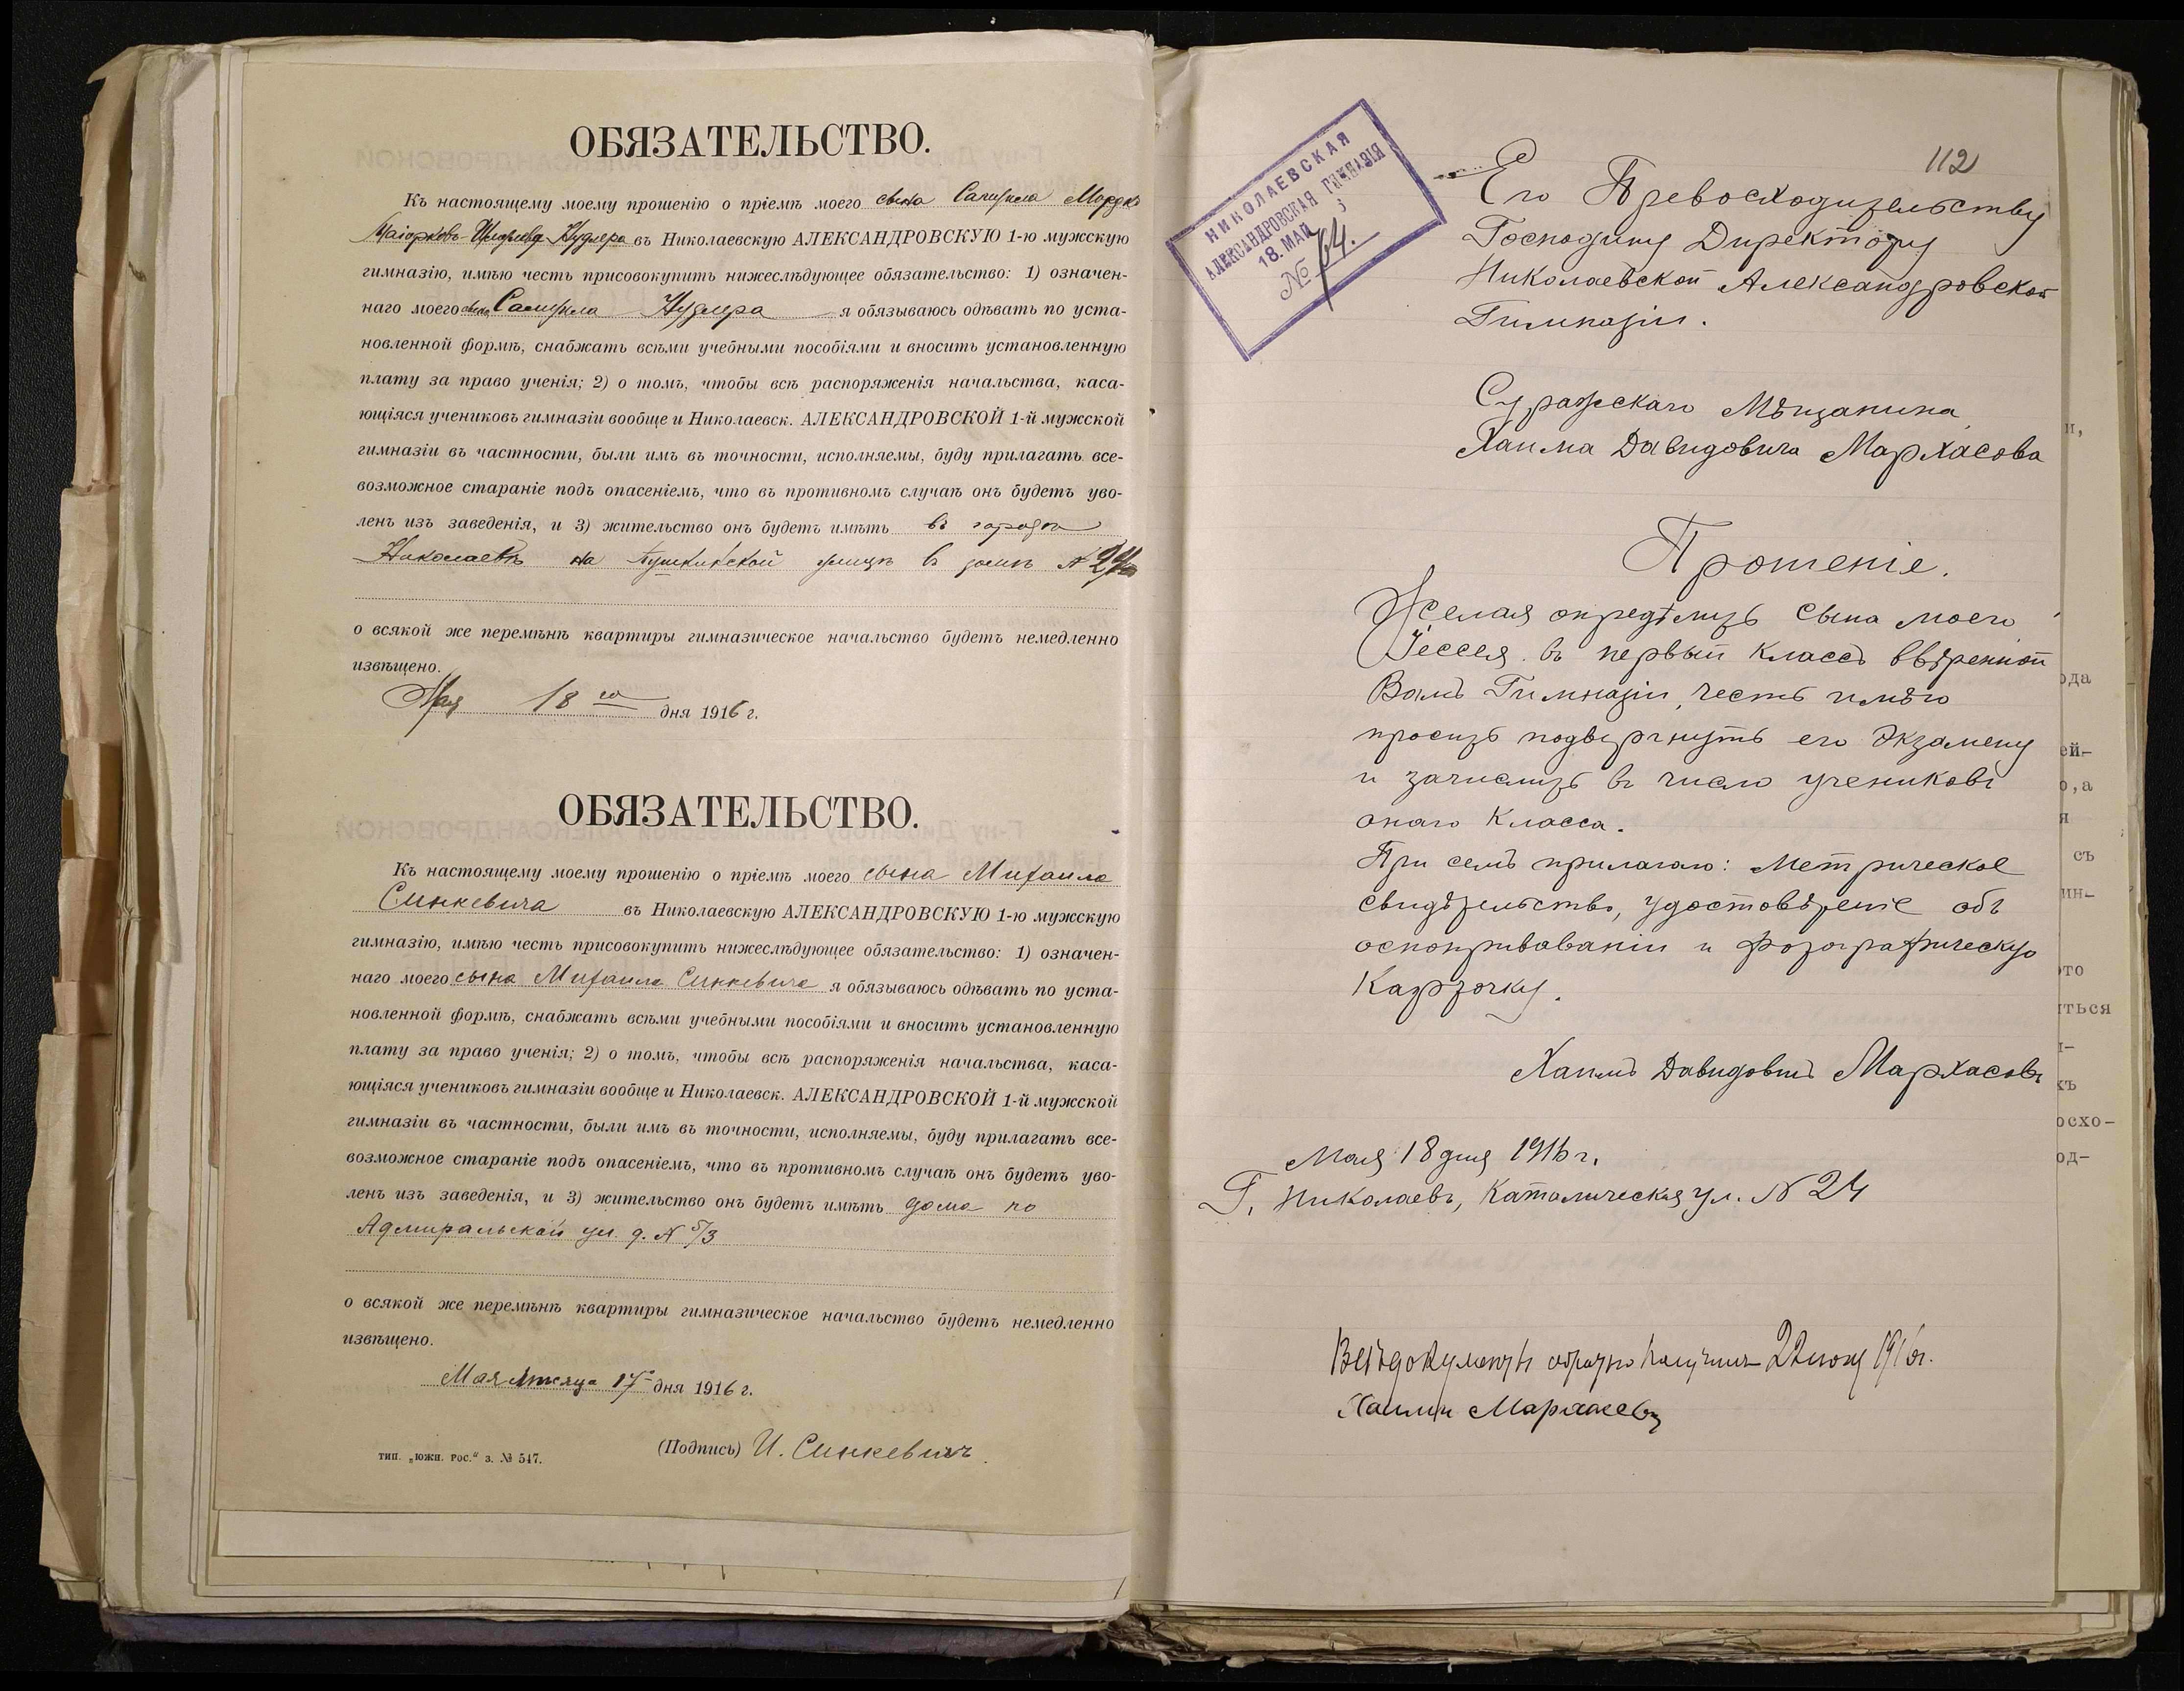 ОБЯЗАТЕЛЬСТВО.
Къ настоящему моему прошенію о пріемѣ моего сына Самуила
Нудлера въ Николаевскую АЛЕКСАНДРОВСКУЮ 1-ю мужскую
гимназію, имѣю честь присовокупить нижеслѣдующее обязательство: 1) означен-
наго моего сына Самуила Нудлера я обязываюсь одѣвать по уста-
новленной формѣ, снабжать всѣми учебными пособіями и вносить установленную
плату за право ученія; 2) о томъ, чтобы всѣ распоряженія начальства, каса-
ющіяся учениковъ гимназіи вообще и Николаевск. АЛЕКСАНДРОВСКОЙ 1-й мужской
гимназіи въ частности, были имъ въ точности, исполняемы, буду прилагать все-
возможное стараніе подъ опасеніемъ, что въ противномъ случаѣ онъ будетъ уво-
ленъ изъ заведенія, и 3) жительство онъ будетъ имѣть въ городѣ
Николаевѣ на Пушкинской улицѣ въ домѣ №
о всякой же перемѣнѣ квартиры гимназическое начальство будетъ немедленно
извѣщено.
Мая 18 го дня 1916 г.
ОБЯЗАТЕЛЬСТВО.
Къ настоящему моему прошенію о пріемѣ моего сына Михаила
Синкевича въ Николаевскую АЛЕКСАНДРОВСКУЮ 1-ю мужскую
гимназію, имѣю честь присовокупить нижеслѣдующее обязательство: 1) означен-
наго моего сына Михаила Синкевича я обязываюсь одѣвать по уста-
новленной формѣ, снабжать всѣми учебными пособіями и вносить установленную
плату за право ученія; 2) о томъ, чтобы всѣ распоряженія начальства, каса-
ющіяся учениковъ гимназіи вообще и Николаевск. АЛЕКСАНДРОВСКОЙ 1-й мужской
гимназіи въ частности, были имъ въ точности, исполняемы, буду прилагать все-
возможное стараніе подъ опасеніемъ, что въ противномъ случаѣ онъ будетъ уво-
ленъ изъ заведенія, и 3) жительство онъ будетъ имѣть дома по
Адмиральской ул. д. № 5/3
о всякой же перемѣнѣ квартиры гимназическое начальство будетъ немедленно
извѣщено.
Мая мѣсяца 17 дня 1916 г.
(Подпись) И. Синкевичъ.
тип. „южн. рос.“ з. № 547.
НИКОЛАЕВСКАЯ
АЛЕКСАНДРОВСКАЯ ГИМНАЗІЯ
18. МАЙ
№ 764.
112
Его Превосходительству
Господину Директору
Николаевской Александровской
Гимназіи.
Суражскаго Мѣщанина
Хаима Давидовича Мархасова
Прошеніе.
Желая опредѣлить сына моего
Іессея въ первый классъ ввѣренной
Вамъ Гимназіи, честь имѣю
просить подвергнуть его экзамену
и зачислить въ число учениковъ
онаго класса.
При семъ прилагаю: Метрическое
свидѣтельство, удостовѣреніе объ
оспопрививаніи и фотографическую
карточку.
Хаимъ Давидовичъ Мархасовъ
Мая 18 дня 1916 г.
Г. Николаевъ, Католическая ул. № 24
Всѣ документы обратно получилъ 1916г.
Хаимъ Мархасовъ
и,
ода
ей-
о,а
я
съ
ин-
это
иться
хъ
осхо-
од-